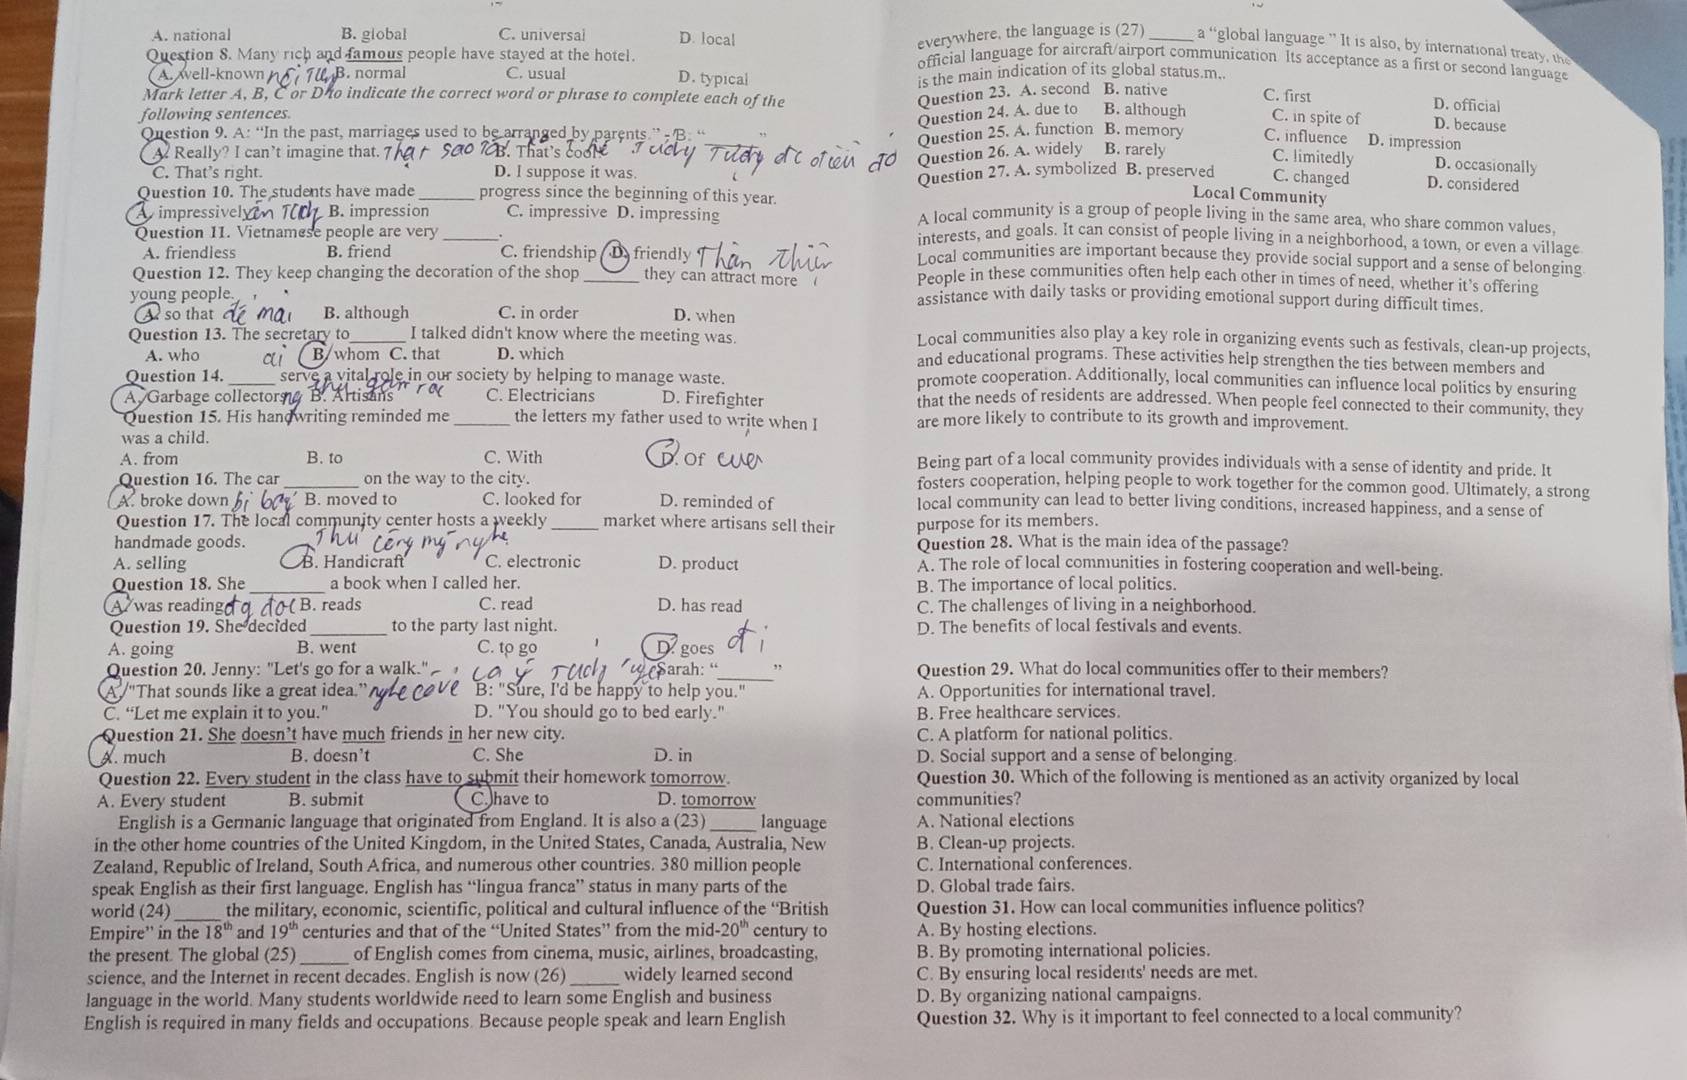 A. national B. global C. universal D. local
Question 8. Many rich and famous people have stayed at the hotel.
A. well-known nổi B. normal C. usual D. typical
Mark letter A, B, C or D to indicate the correct word or phrase to complete each of the
following sentences.
Question 9. A: “In the past, marriages used to be arranged by parents.” - B: “______”
A. Really? I can’t imagine that. Thật sao B. That’s cool
C. That’s right. D. I suppose it was.
Question 10. The students have made ______ progress since the beginning of this year.
A. impressively B. impression C. impressive D. impressing
Question 11. Vietnamese people are very ______.
A. friendless B. friend C. friendship D. friendly Thân Thiện
Question 12. They keep changing the decoration of the shop ______ they can attract more
young people.
A. so that để mai B. although C. in order D. when
Question 13. The secretary to______ I talked didn't know where the meeting was.
A. who ai B. whom C. that D. which
Question 14. _____ serve a vital role in our society by helping to manage waste.
A. Garbage collectors B. Artisans C. Electricians D. Firefighter
Question 15. His handwriting reminded me ______ the letters my father used to write when I
was a child.
A. from B. to C. With D. Of
Question 16. The car ________ on the way to the city.
A. broke down bị B. moved to C. looked for D. reminded of
Question 17. The local community center hosts a weekly _____ market where artisans sell their
handmade goods. Thủ công mỹ nghệ
A. selling B. Handicraft C. electronic D. product
Question 18. She________ a book when I called her.
A. was reading B. reads C. read D. has read
Question 19. She decided ________ to the party last night.
A. going B. went C. to go D. goes đi
Question 20. Jenny: "Let's go for a walk." Sarah: “______”
A. "That sounds like a great idea.” B: "Sure, I'd be happy to help you."
C. “Let me explain it to you." D. "You should go to bed early."
Question 21. She doesn’t have much friends in her new city.
A. much B. doesn’t C. She D. in
Question 22. Every student in the class have to submit their homework tomorrow.
A. Every student B. submit C. have to D. tomorrow
English is a Germanic language that originated from England. It is also a (23) _____ language
in the other home countries of the United Kingdom, in the United States, Canada, Australia, New
Zealand, Republic of Ireland, South Africa, and numerous other countries. 380 million people
speak English as their first language. English has “lingua franca” status in many parts of the
world (24)_____ the military, economic, scientific, political and cultural influence of the “British
Empire” in the 18th and 19th centuries and that of the “United States” from the mid-20th century to
the present. The global (25)_____ of English comes from cinema, music, airlines, broadcasting,
science, and the Internet in recent decades. English is now (26)_____ widely learned second
language in the world. Many students worldwide need to learn some English and business
English is required in many fields and occupations. Because people speak and learn English
everywhere, the language is (27) _____ a “global language.” It is also, by international treaty, the
official language for aircraft/airport communication. Its acceptance as a first or second language
is the main indication of its global status.m..
Question 23. A. second B. native C. first D. official
Question 24. A. due to B. although C. in spite of D. because
Question 25. A. function B. memory C. influence D. impression
Question 26. A. widely B. rarely C. limitedly D. occasionally
Question 27. A. symbolized B. preserved C. changed D. considered
Local Community
A local community is a group of people living in the same area, who share common values,
interests, and goals. It can consist of people living in a neighborhood, a town, or even a village.
Local communities are important because they provide social support and a sense of belonging.
People in these communities often help each other in times of need, whether it’s offering
assistance with daily tasks or providing emotional support during difficult times.
Local communities also play a key role in organizing events such as festivals, clean-up projects,
and educational programs. These activities help strengthen the ties between members and
promote cooperation. Additionally, local communities can influence local politics by ensuring
that the needs of residents are addressed. When people feel connected to their community, they
are more likely to contribute to its growth and improvement.
Being part of a local community provides individuals with a sense of identity and pride. It
fosters cooperation, helping people to work together for the common good. Ultimately, a strong
local community can lead to better living conditions, increased happiness, and a sense of
purpose for its members.
Question 28. What is the main idea of the passage?
A. The role of local communities in fostering cooperation and well-being.
B. The importance of local politics.
C. The challenges of living in a neighborhood.
D. The benefits of local festivals and events.
Question 29. What do local communities offer to their members?
A. Opportunities for international travel.
B. Free healthcare services.
C. A platform for national politics.
D. Social support and a sense of belonging.
Question 30. Which of the following is mentioned as an activity organized by local
communities?
A. National elections
B. Clean-up projects.
C. International conferences.
D. Global trade fairs.
Question 31. How can local communities influence politics?
A. By hosting elections.
B. By promoting international policies.
C. By ensuring local residents' needs are met.
D. By organizing national campaigns.
Question 32. Why is it important to feel connected to a local community?